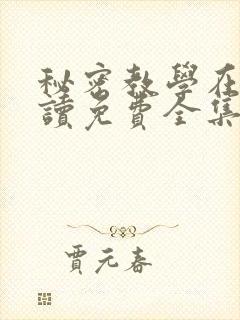 秘密教學在
讀免費全集
賈元春